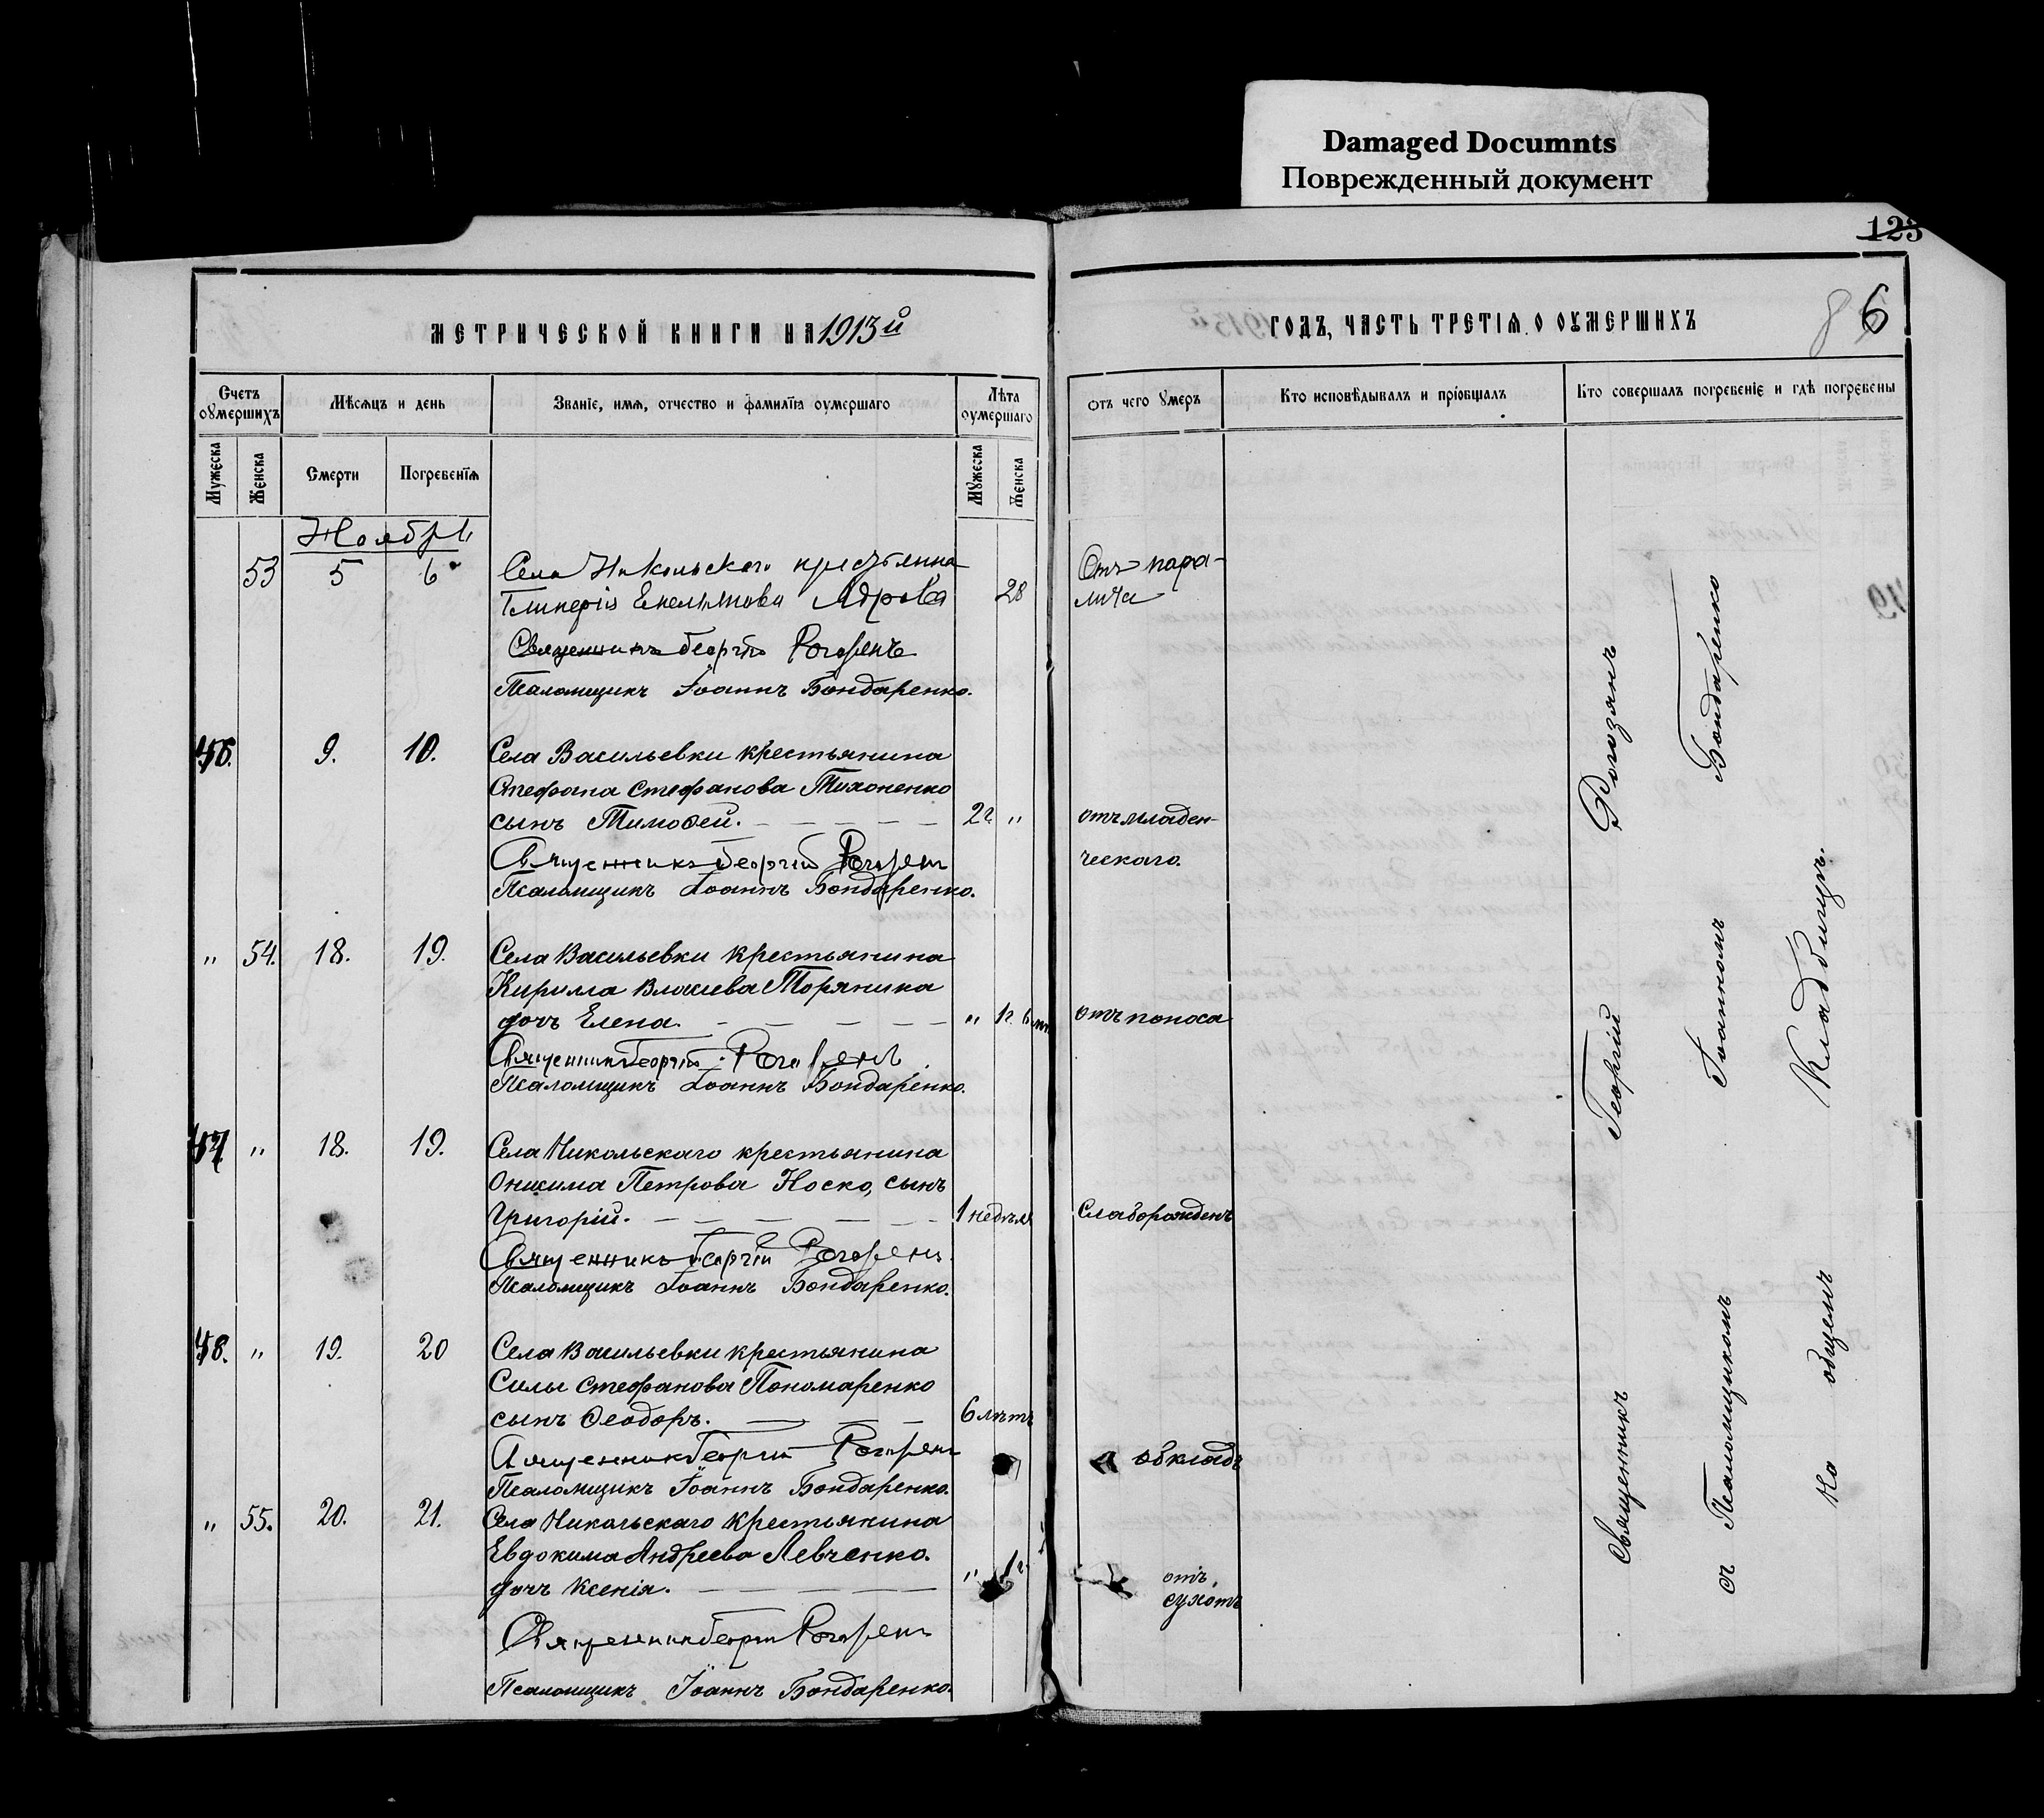 Damaged Documnts
Поврежденный документ
123
86
МЕТРИЧЕСКОЙ КНИГИ НА 1913й
ГОДЪ, ЧАСТЬ ТРЕТІЯ О ОУМЕРШИХЪ
Счетъ оумершихъ
Мѣсяцъ и день
Званіе, имя, отчество и фамилія оумершаго
Лѣта оумершаго
Отъ чего умеръ
Кто исповѣдывалъ и пріобщалъ
Кто совершалъ погребеніе и гдѣ погребены
Мужеска
Женска
Смерти
Погребенія
Мужеска
Женска
Ноябрь
53 5 6 Села Никольскаго крестьянка Отъ пара-
Гликерія Емельянова Ядрова 28 лича
Священникъ Георгій
Псаломщикъ Іоаннъ Бондаренко.
46. 9. 10. Села Васильевки крестьянина
Стефана Стефанова Тихоненко
сынъ Тимоѳей. 2 г. " отъ младен-
Священникъ Георгій ческаго.
Псаломщикъ Іоаннъ Бондаренко.
" 54. 18. 19. Села Васильевки крестьянина
Кирилла Власіева Торяника
дочь Елена. " 1 г. 6 м. отъ поноса
Священникъ Георгій
Псаломщикъ Іоаннъ Бондаренко.
47 " 18. 19. Села Никольскаго крестьянина
Онисима Петрова Носко, сынъ
Григорій. 1 недѣля Слаборожденъ
Священникъ Георгій
Псаломщикъ Іоаннъ Бондаренко.
48. " 19. 20 Села Васильевки крестьянина
Силы Стефанова Пономаренко
сынъ Ѳеодоръ. 6 лѣтъ
Священникъ Георгій обкладъ
Псаломщикъ Іоаннъ Бондаренко.
" 55. 20. 21. Села Никольскаго крестьянина
Евдокима Андреева Левченко.
дочь Ксенія. " 1 г. отъ
сухотъ
Священникъ Георгій
Псаломщикъ Іоаннъ Бондаренко.
Священникъ Георгій Рогозянъ
съ Псаломщикомъ Іоанномъ Бондаренко
На общемъ Кладбищѣ.